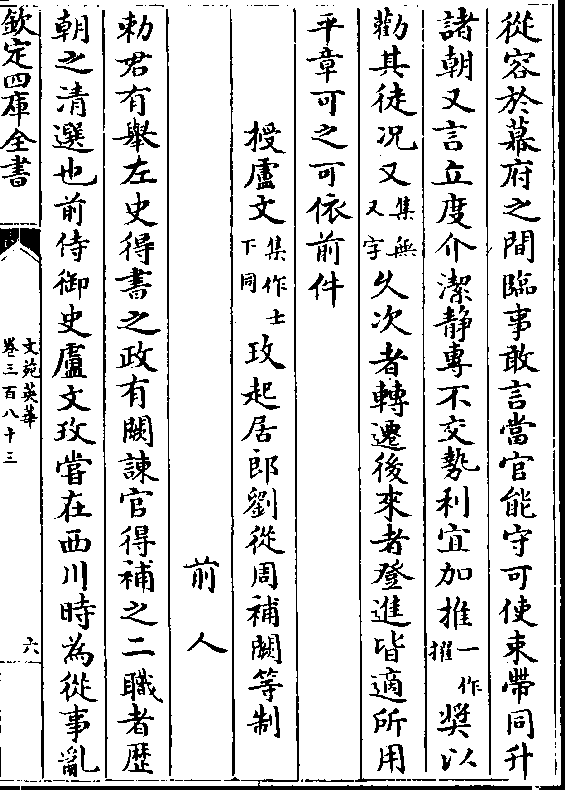 從容於幕府之間臨事敢言當官能守可使束帶同升
諸朝又言立度介潔靜專不交勢利宜加推一作擢奨以
勸其徒况又集無又字久次者轉遷後來者登進皆適所用
平章可之可依前件
授盧文集作士下同玫起居郎劉從周補闕等制
前人
勅君有舉左史得書之政有闕諫官得補之二職者歴
朝之清選也前侍御史盧文玫嘗在西川時為從事亂
欽定四庫全書
文苑英華
卷三百八十三
六